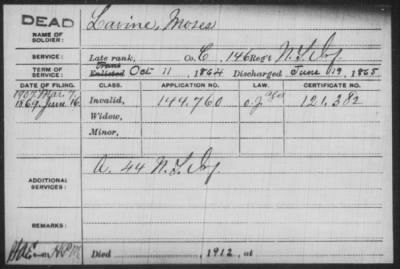 DEAD
NAME OF SOLDIER: Lavine, Moses
SERVICE: Late rank, Co. C, 146 Reg't N.Y. Inf.
TERM OF SERVICE: Trans Enlisted Oct 11, 1864 Discharged June 19, 1865
DATE OF FILING. CLASS. APPLICATION NO. LAW. CERTIFICATE NO.
1907, Mar. 7,
1869, June 16 Invalid, 144,760 121,382
Widow,
Minor,
ADDITIONAL SERVICES: A. 44 N.Y. Inf.
REMARKS:
Died 1912, at